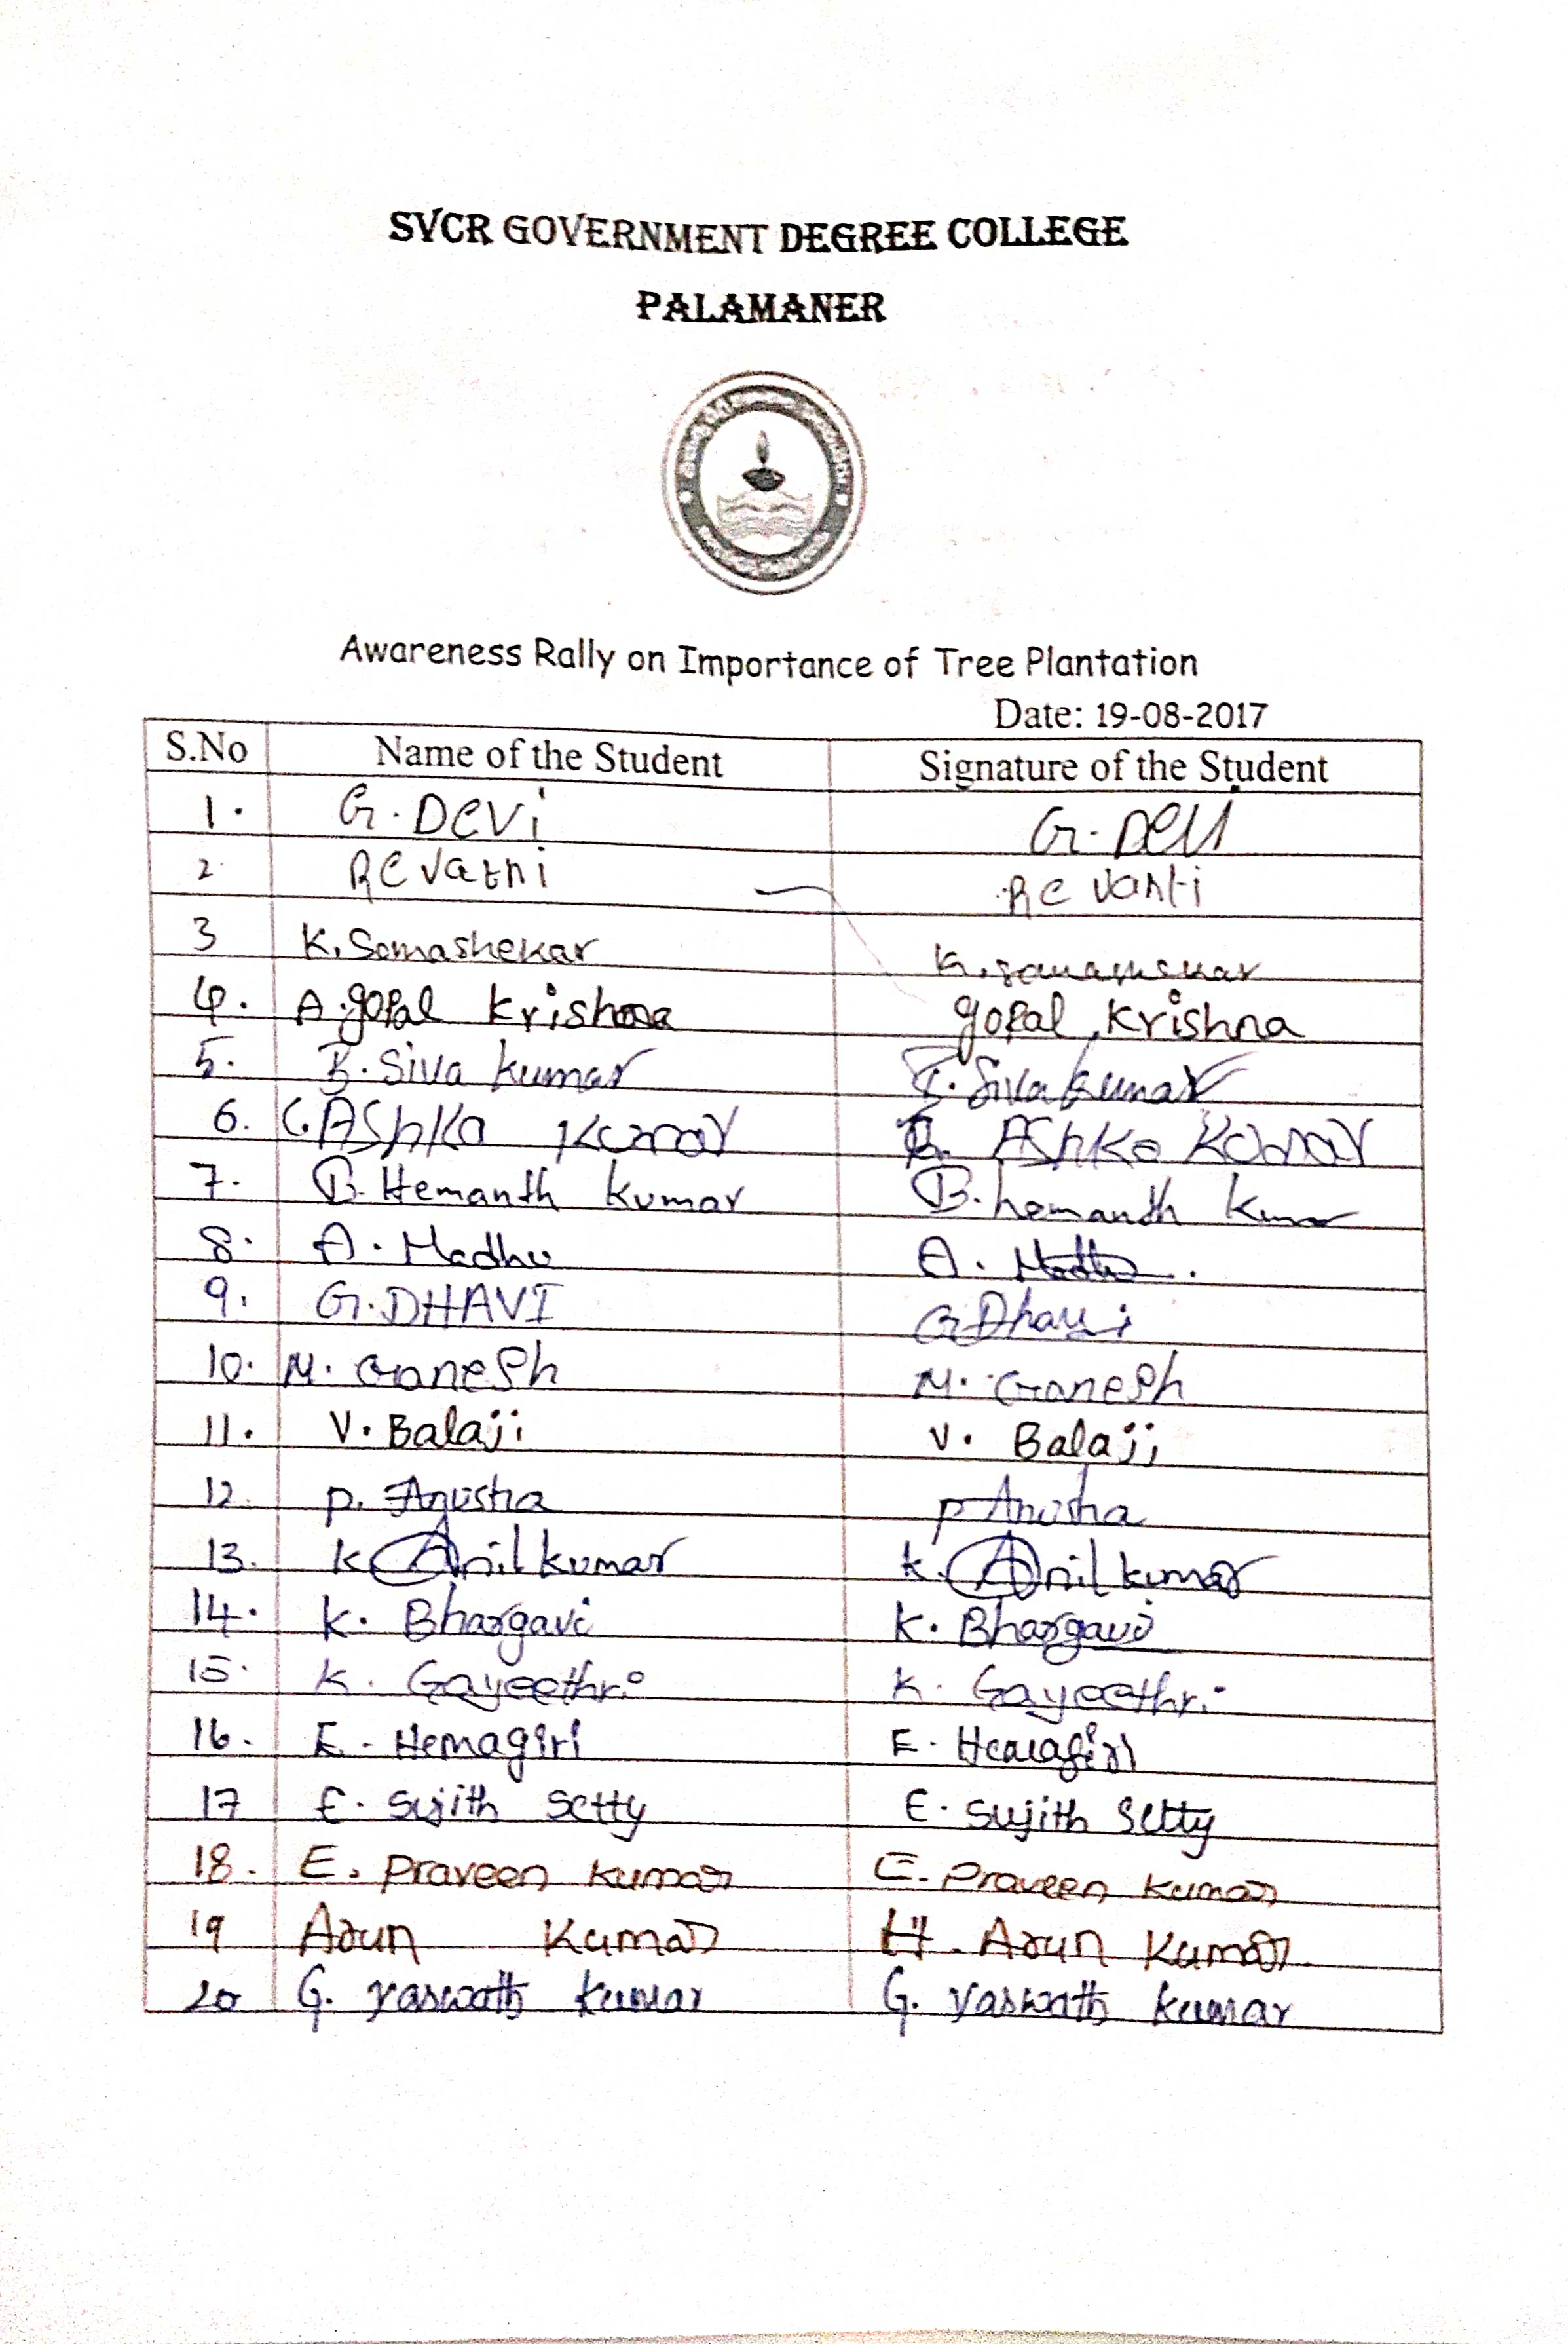 SVCR GOVERNMENT DEGREE COLLEGE
PALAMANER
Awareness Rally on Importance of Tree Plantation
Date: 19-08-2017
S.No Name of the Student Signature of the Student
1. G. Devi G. Devi
2. Revathi
3 K. Somashekar
4. A. gopal Krishna gopal Krishna
5. Siva kumar Siva kumar
6. C. AShKo Kumar AShKo Kumar
7. B. Hemanth kumar B. hemanth kumar
8. A. Madhu A. Madhu
9. G. DHAVI G Dhavi
10. M. Ganesh M. Ganesh
11. V. Balaji V. Balaji
12. P. Anusha P Anusha
13. K. Anil kumar K. Anil kumar
14. K. Bhargavi K. Bhargavi
15. K. Gayeethri K. Gayeethri
16. E. Hemagiri E. Hemagiri
17 E. Sujith Setty E. Sujith Setty
18. E. Praveen Kumar E. Praveen Kumar
19 Arun Kumar H. Arun Kumar
20 G. Yaswath kumar G. Yaswath kumar